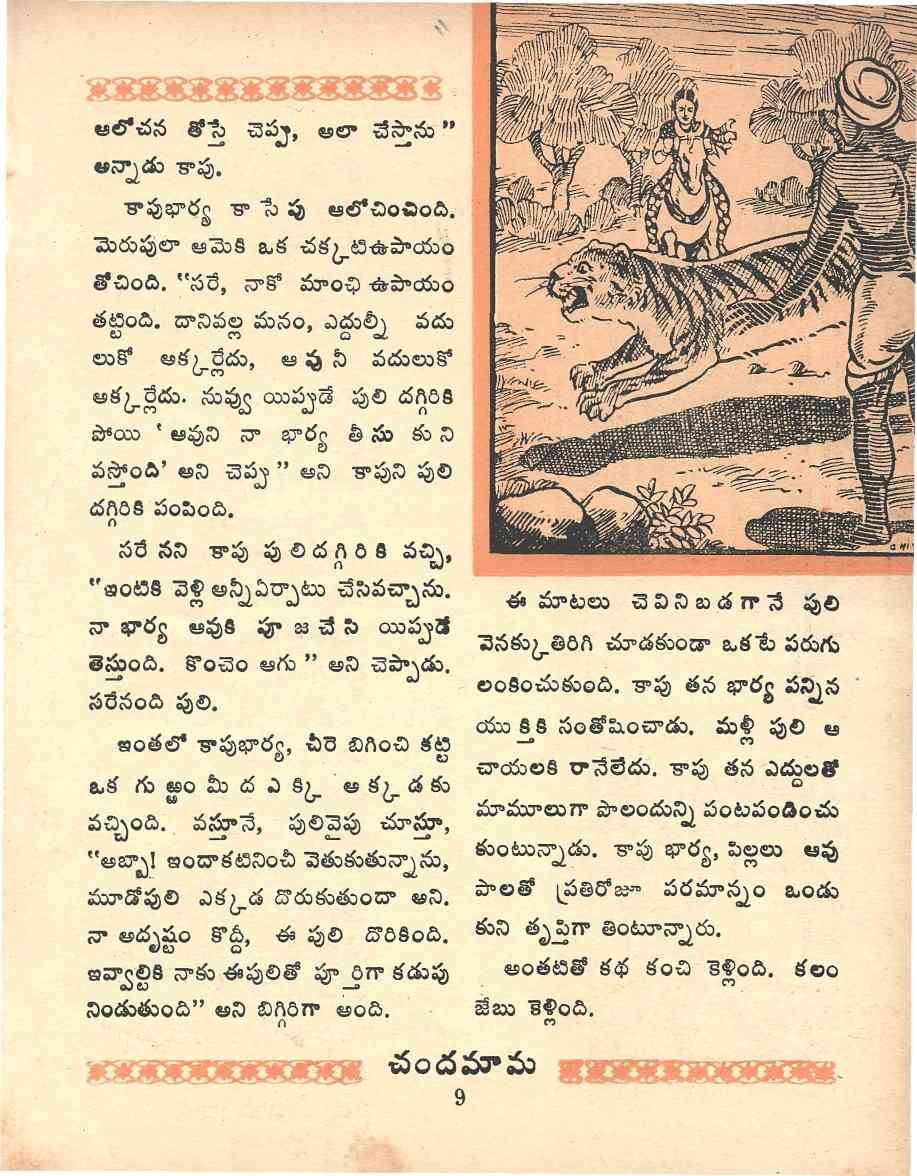 ఆలోచన తోస్తే చెప్పు, అలా చేస్తాను”
అన్నాడు కాపు.
కాపుభార్య కా సే పు ఆలోచించింది.
మెరుపులా ఆమెకి ఒక చక్కటిఉపాయం
తోచింది. “సరే, నాకో మాంఛి ఉపాయం
తట్టింది. దానివల్ల మనం, ఎద్దుల్నీ వదు
లుకో అక్కర్లేదు, ఆ వు నీ వదులుకో
అక్కర్లేదు. నువ్వు యిప్పుడే పులి దగ్గిరికి
పోయి ‘ఆవుని నా భార్య తీ సు కు ని
వస్తోంది’ అని చెప్పు” అని కాపుని పులి
దగ్గిరికి పంపింది.
సరే నని కాపు పు లి ద గ్గి రి కి వచ్చి,
“ఇంటికి వెళ్లి అన్నీఏర్పాటు చేసివచ్చాను.
నా భార్య ఆవుకి పూ జ చే సి యిప్పుడే
తెస్తుంది. కొంచెం ఆగు” అని చెప్పాడు.
సరేనంది పులి.
ఇంతలో కాపుభార్య, చీరె బిగించి కట్టి
ఒక గు ఱ్ఱం మీ ద ఎ క్కి అ క్క డ కు
వచ్చింది. వస్తూనే, పులివైపు చూస్తూ,
“అబ్బా! ఇందాకటినించీ వెతుకుతున్నాను,
మూడోపులి ఎక్కడ దొరుకుతుందా అని.
నా అదృష్టం కొద్దీ, ఈ పులి దొరికింది.
ఇవ్వాల్టికి నాకు ఈపులితో పూ ర్తిగా కడుపు
నిండుతుంది” అని బిగ్గిరిగా అంది.
ఈ మాటలు చె వి ని బ డ గా నే పులి
వెనక్కుతిరిగి చూడకుండా ఒకటే పరుగు
లంకించుకుంది. కాపు తన భార్య పన్నిన
యు క్తి కి సంతోషించాడు. మళ్లీ పులి ఆ
చాయలకి రానేలేదు. కాపు తన ఎద్దులతో
మామూలుగా పొలందున్ని పంటపండించు
కుంటున్నాడు. కాపు భార్య, పిల్లలు ఆవు
పాలతో ప్రతిరోజూ పరమాన్నం ఒండు
కుని తృప్తిగా తింటూన్నారు.
అంతటితో కథ కంచి కెళ్లింది. కలం
జేబు కెళ్లింది.
చందమామ
9